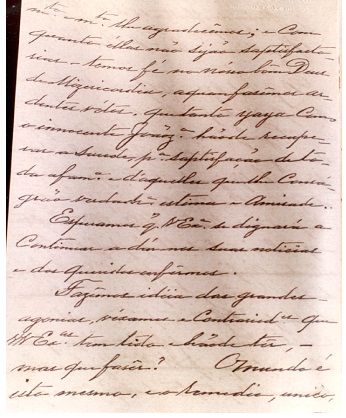 nte. – mto. lhe agradecemos; e com
quanto éllas não sejão saptisfacto-
rias – temos fé no nosso bom Deus
de Misericordia, a quem fazemos ar-
dentes vótos, que tanto yaya como
o innocente Joãozo. hãode recupe-
rar a saude, pa. saptisfação de to-
da a fama. e d'aquelles que lhe consa-
grão verdadra. estima e Amizade..
Esperamos q. V Exa. se dignará a
Continuar a dár-nos suas noticias
e dos queridos enfermos.
Fazemos idéia das grandes –
agonias, véxames e Contraried.es que
VV Exas. tem tido e hãode têr, –
mas que fasêr? O mundo é
isto mesmo, e o remedio, unico,